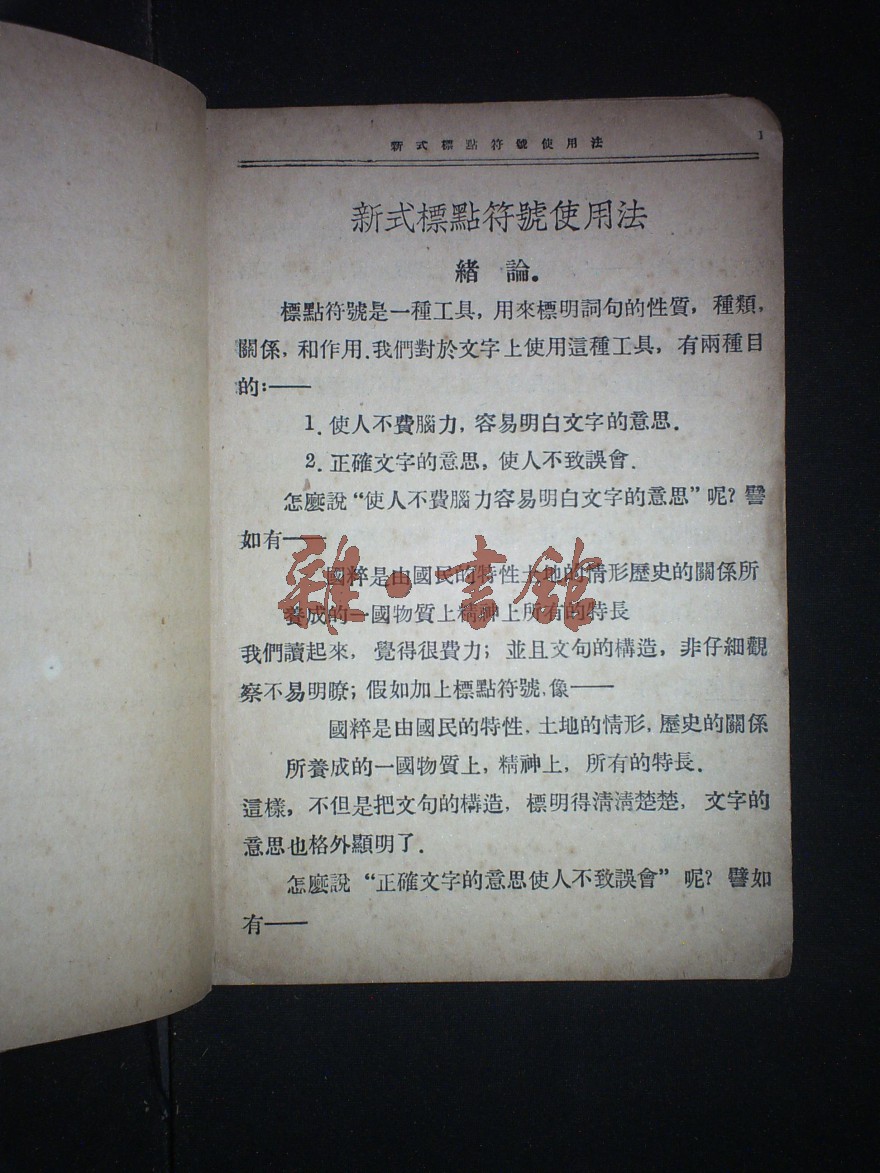 新式標點符號使用法
1
新式標點符號使用法
緒論。
標點符號是一種工具，用來標明詞句的性質，種類，
關係，和作用.我們對於文字上使用這種工具，有兩種目
的：——
1．使人不費腦力，容易明白文字的意思．
2．正確文字的意思，使人不致誤會．
怎麼說“使人不費腦力容易明白文字的意思”呢？譬
如有——
國粹是由國民的特性土地的情形歷史的關係所
養成的一國物質上精神上所有的特長
我們讀起來，覺得很費力；並且文句的構造，非仔細觀
察不易明瞭；假如加上標點符號，像——
國粹是由國民的特性，土地的情形，歷史的關係
所養成的一國物質上，精神上，所有的特長．
這樣，不但是把文句的構造，標明得清清楚楚，文字的
意思也格外顯明了．
怎麼說“正確文字的意思使人不致誤會”呢？譬如
有——
雜·書館